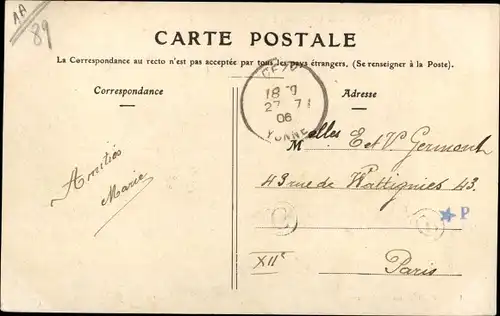 AA
89
CARTE POSTALE
La Correspondance au recto n'est pas acceptée par tous les pays étrangers. (Se renseigner à la Poste).
Correspondance
Adresse
18
27 7
06
YONNE
Amitiés
Marie
Melles E et V Germont
43 rue de Wattignies 43.
P
XIIe
Paris